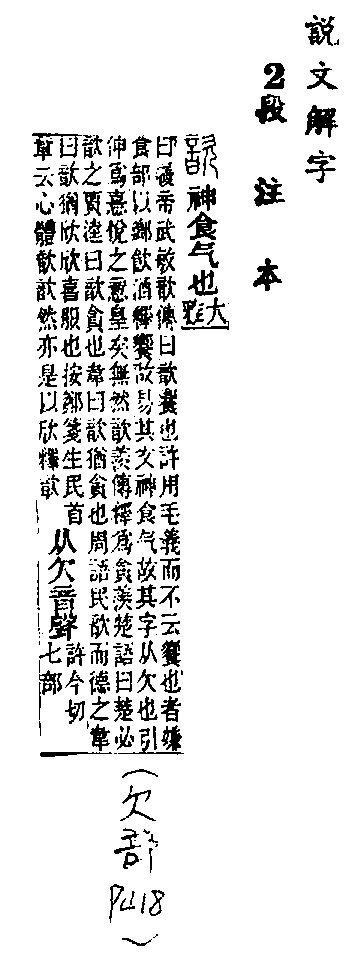 說文解字
2段注本
歆 神食气也大雅
曰履帝武敏歆傳曰歆饗也許用毛義而不云饗也者嫌
食部以鄉飲酒釋饗故易其文神食气故其字从欠也引
伸爲憙悅之意皇矣無然歆羨傳釋爲貪羨楚語曰楚必
歆之賈逵曰歆貪也韋曰歆猶貪也周語民歆而德之韋
曰歆猶欣欣喜服也按鄭箋生民首
章云心體歆歆然亦是以欣釋歆 从欠音聲 許今切
七部
(欠部
P418)